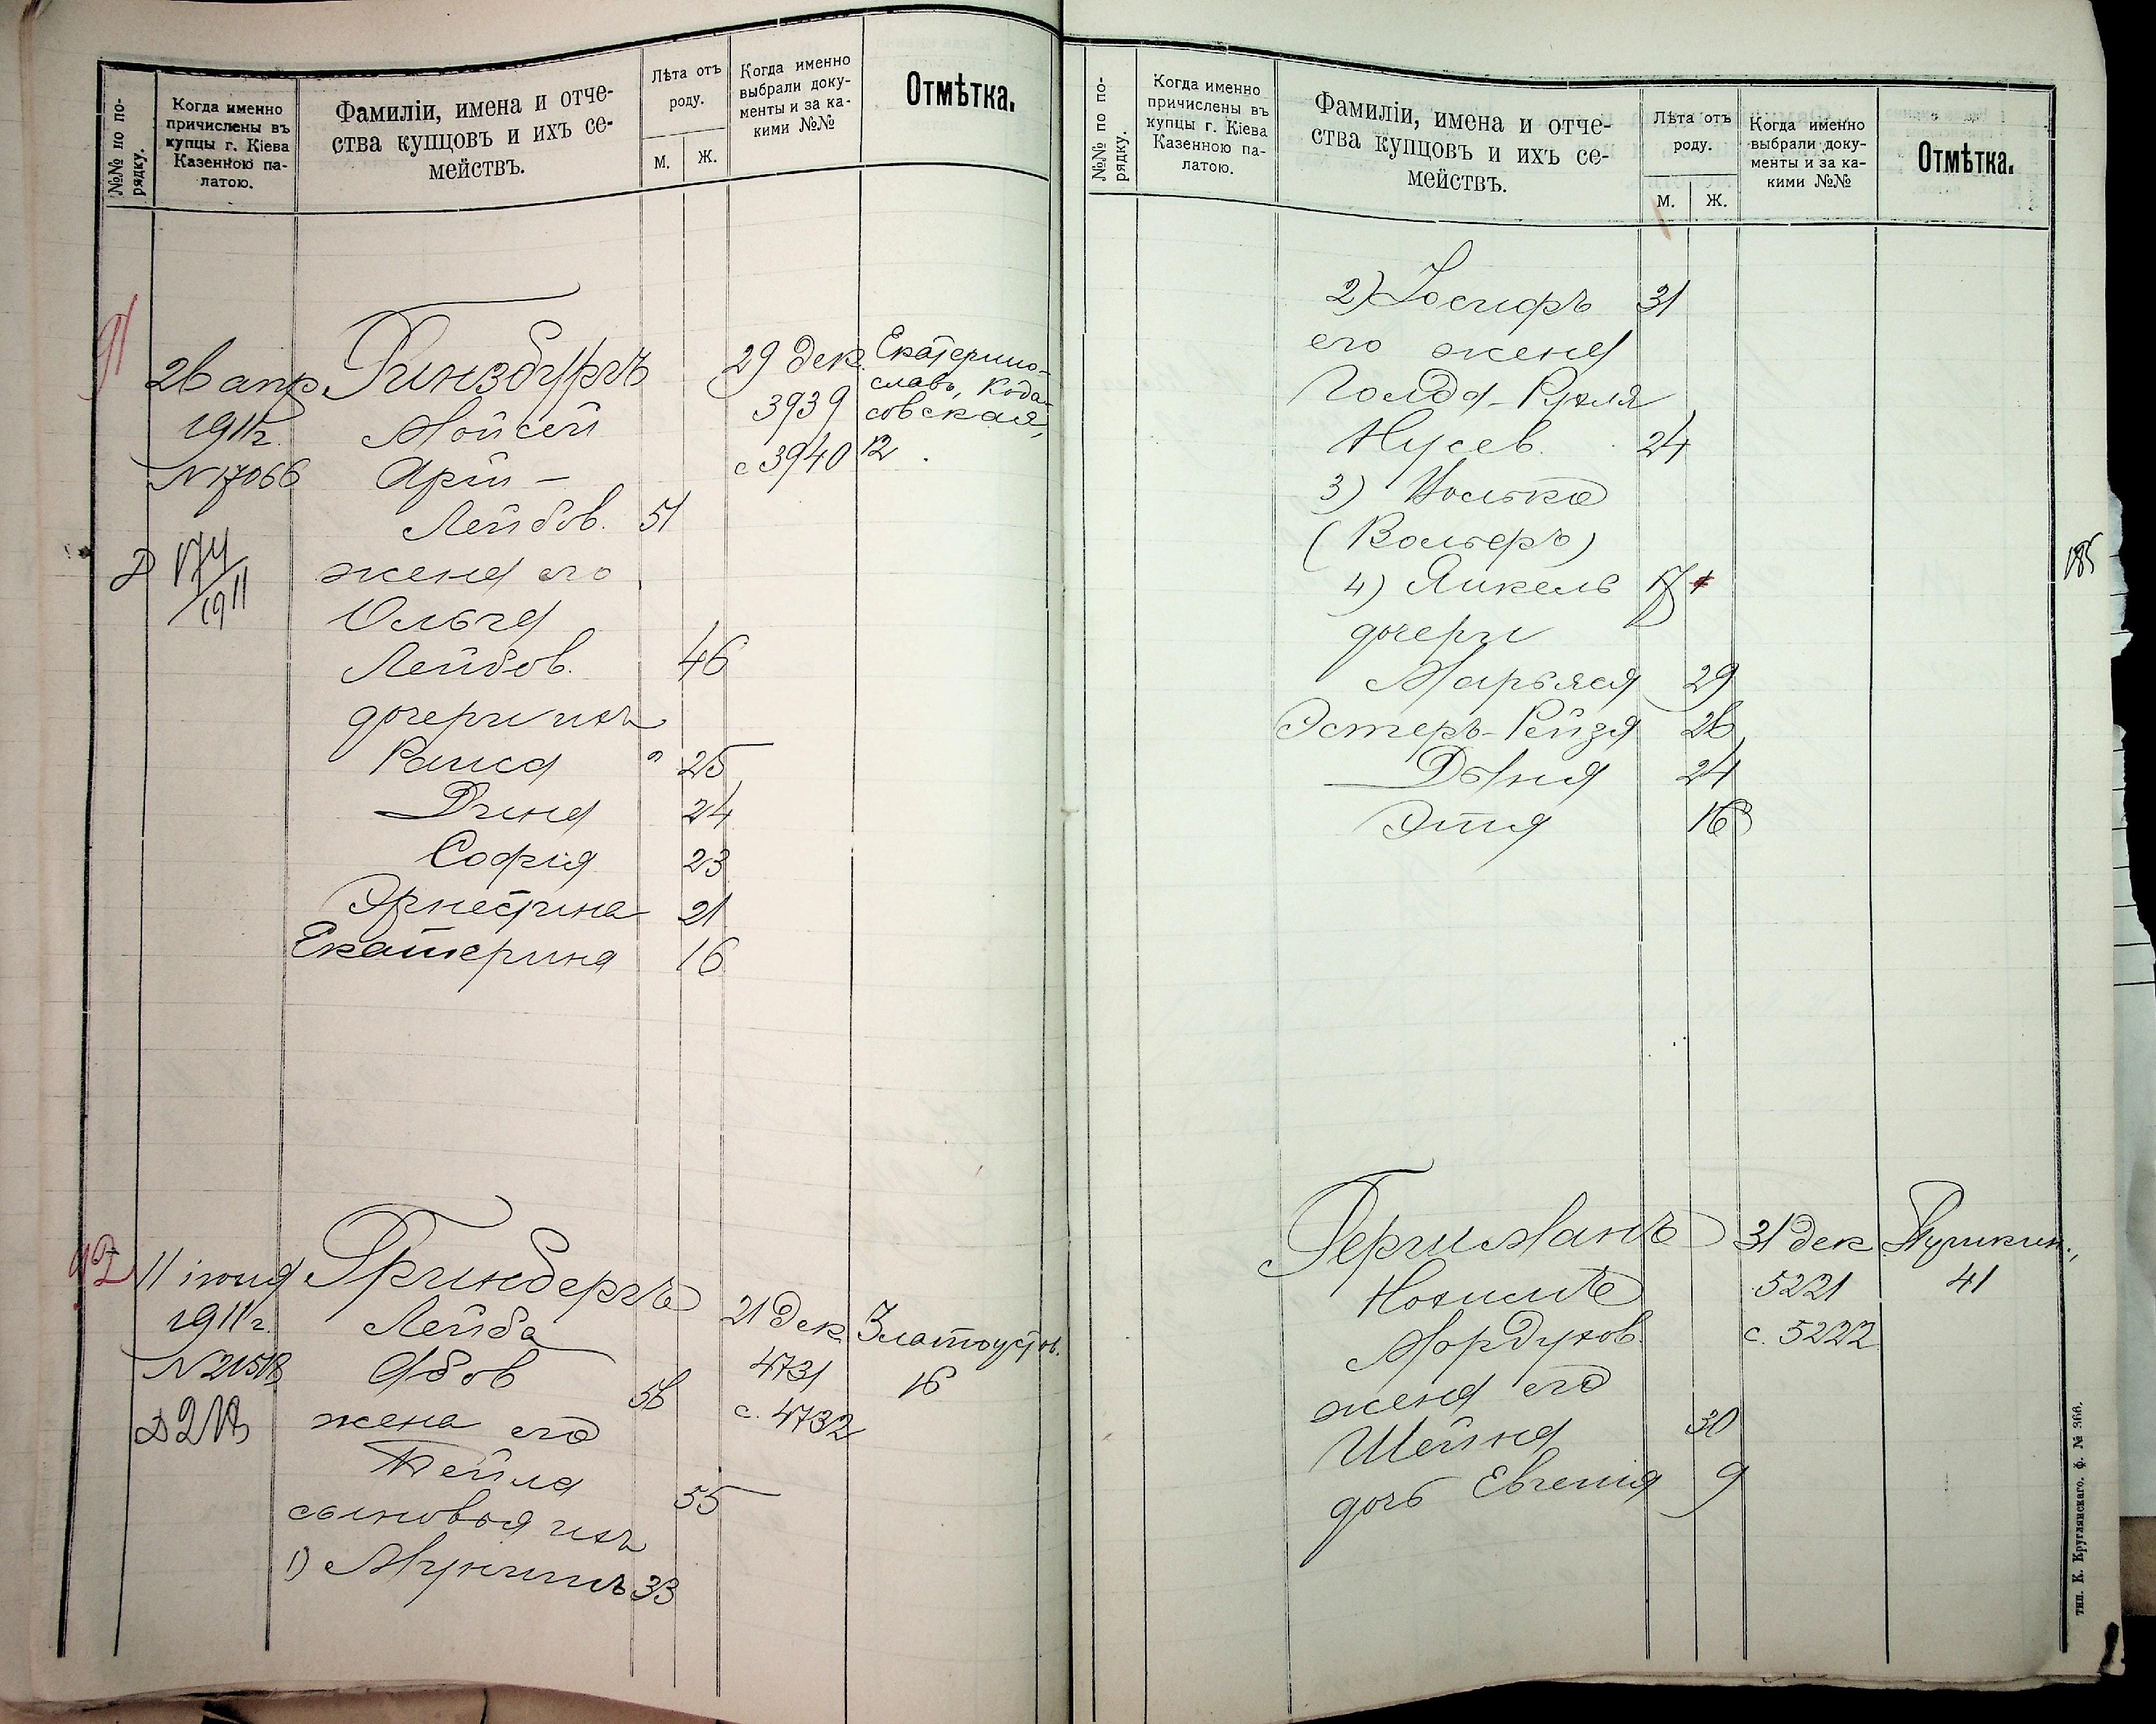 №№ по по-
рядку.
Когда именно
причислены въ
купцы г. Кіева
Казенною па-
латою.
Фамиліи, имена и отче-
ства купцовъ и ихъ се-
мействъ.
Лѣта отъ
роду.
М. Ж.
Когда именно
выбрали доку-
менты и за ка-
кими №№
Отмѣтка.
91
26 апр.
1911 г.
N 17066
174
1911
Гинзбургъ
Мойсей
Арій-
Лейбов. 51
жена его
Ольга
Лейбов. 46
дочери ихъ
Раиса 25
Дина 24
Софія 23
Эрнестина 21
Екатерина 16
29 дек.
3939
с 3940
Екатерино-
славъ,
12
92
11 іюня
1911 г.
Гринбергъ
Лейба
Абов 56
жена его
Тейла 55
сыновья ихъ
1) 33
21 дек.
4731
с. 4732
Златоустов.
16
№№ по по-
рядку.
Когда именно
причислены въ
купцы г. Кіева
Казенною па-
латою.
Фамиліи, имена и отче-
ства купцовъ и ихъ се-
мействъ.
Лѣта отъ
роду.
М. Ж.
Когда именно
выбрали доку-
менты и за ка-
кими №№
Отмѣтка.
2) Іосифъ 31
его жена
Голда-Рухля
Нусев. 24
3) Волько
(Вольфъ)
4) Янкель 17
дочери
Марьяся 29
Эстеръ-Рейзя 26
Дыня 24
Этя 16
185
Гершманъ
Нохимъ
Мордухов.
жена его
Шейна 30
дочь Евгенія 9
31 дек.
5221
с. 5222
Пушкин.,
41
тип. К. Круглянскаго. ф. № 366.